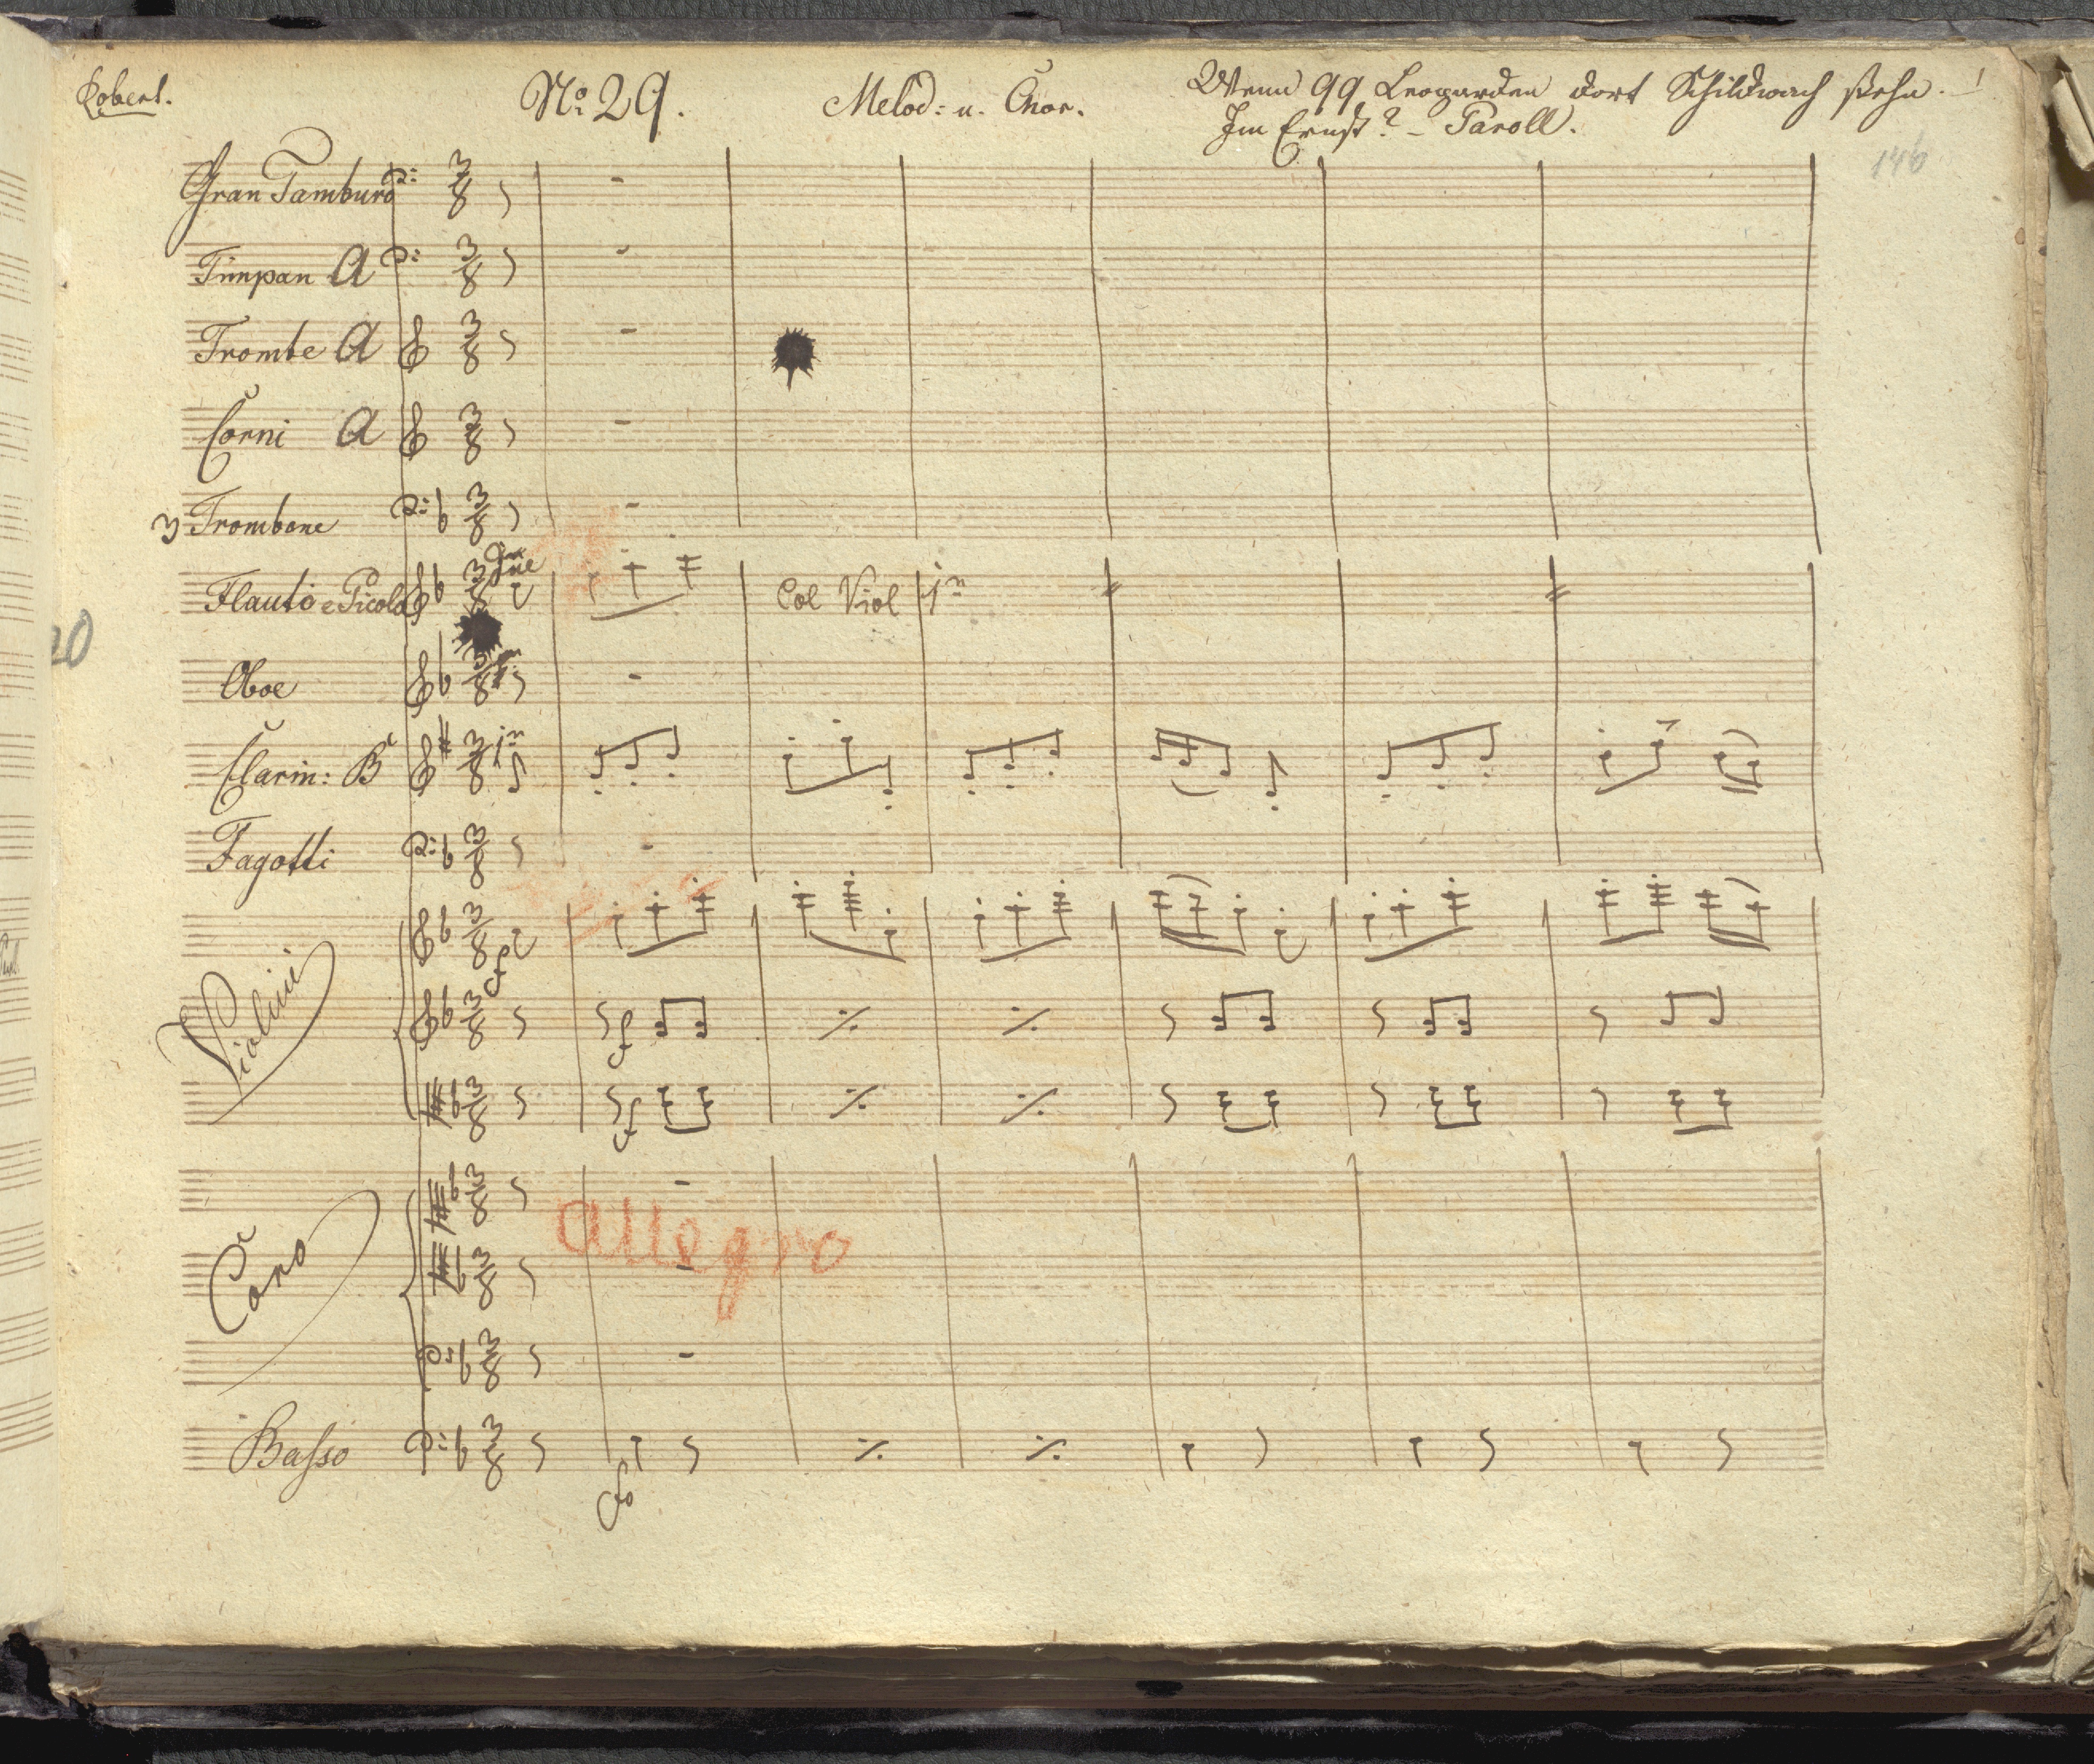 Robert.
No. 29.
Melod: u. Chor.
Wenn 99 Leoparden dort Schildwach stehn. !
Im Ernst? - Paroll.
146
Gran Tamburo
Timpan A
Trombe A
Corni A
3 Trombone
Flauto e Picolo
Col Viol 1mo
Oboe
Clarin: B
1mo
Fagotti
Violini
f
f
f
Coro
allegro
Basso
fo
20
3/8